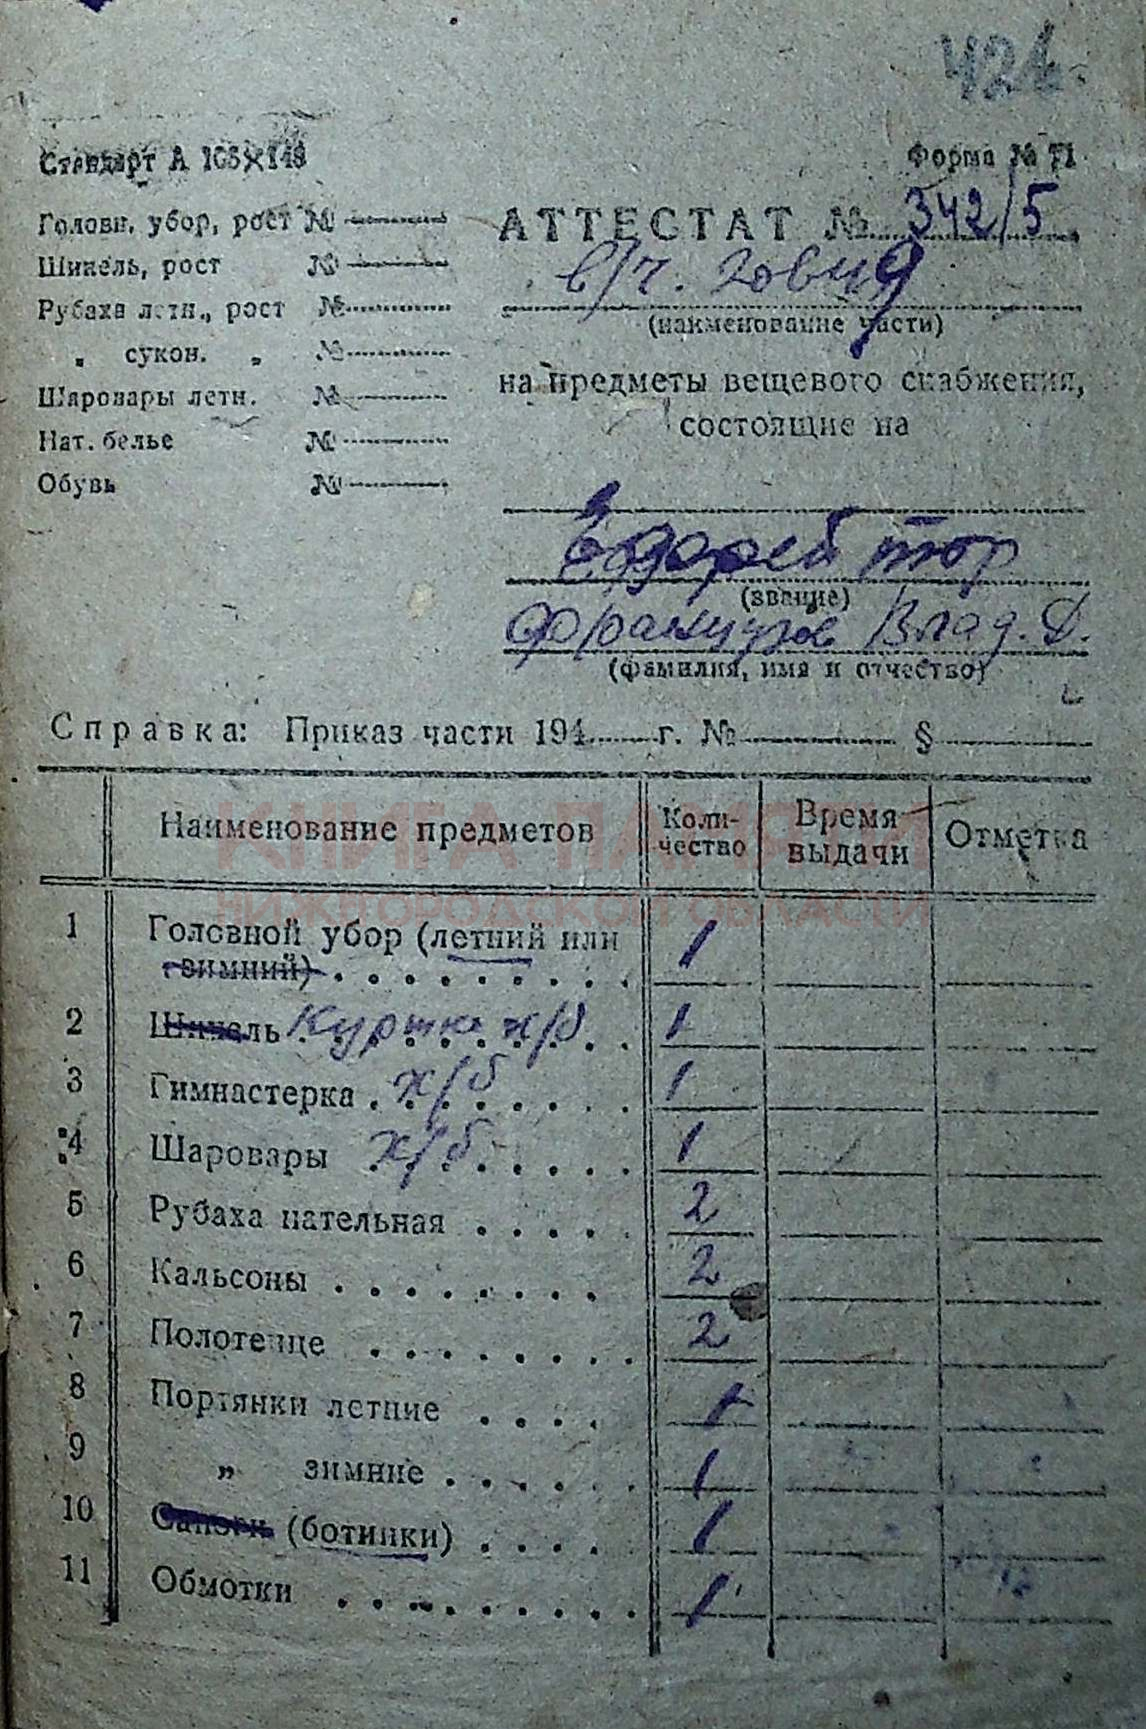 424
Стандарт А 105×148
Форма № 71
Головн. убор, рост №
Шинель, рост №
Рубаха летн., рост №
„ сукон. „ №
Шаровары летн. №
Нат. белье №
Обувь №
АТТЕСТАТ № 342/5
в/ч.
(наименование части)
на предметы вещевого снабжения,
состоящие на
(звание)
Влад. Д.
(фамилия, имя и отчество)
Справка: Приказ части 194 г. № §
КНИГА ПАМЯТИ
НИЖГОРОДСКОЙ ОБЛАСТИ
Наименование предметов Коли-чество Время выдачи Отметка
1 Головной убор (летний или
зимний) 1
2 Шинель Куртка х/б 1
3 Гимнастерка х/б 1
4 Шаровары х/б 1
5 Рубаха нательная 2
6 Кальсоны 2
7 Полотенце 2
8 Портянки летние 1
9 „ зимние 1
10 Сапоги (ботинки) 1
11 Обмотки 1